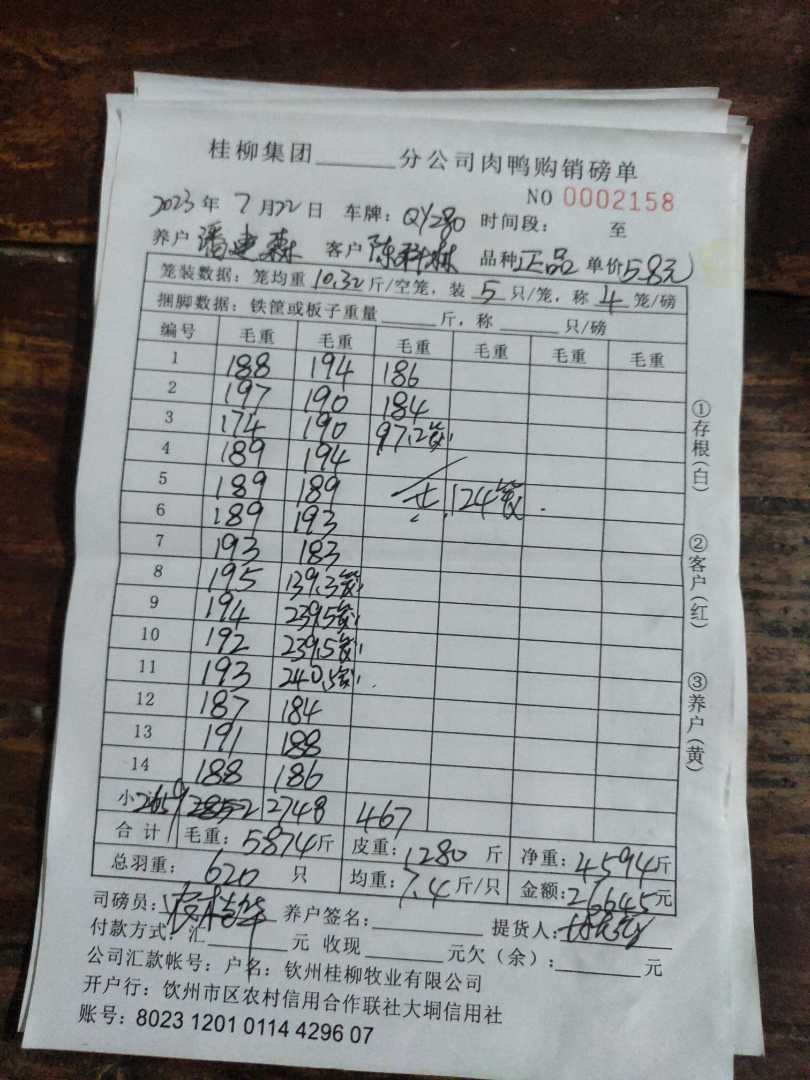 桂柳集团______分公司肉鸭购销磅单
NO 0002158
2023年 7月22日 车牌: QY280 时间段: 至
养户 客户 陈科林 品种 正品 单价 5.8元
笼装数据: 笼均重 10.32 斤/空笼, 装 5 只/笼, 称 4 笼/磅
捆脚数据: 铁筐或板子重量______斤, 称______只/磅
编号 毛重 毛重 毛重 毛重 毛重 毛重
1 188 194 186
2 197 190 184
3 174 190 97.2
4 189 194
5 189 189 124
6 189 193
7 193 183
8 195 139.3
9 194 239.5
10 192 239.5
11 193 240.5
12 187 184
13 191 188
14 188 186
小 2659 2748 467
合计 毛重: 5874斤 皮重: 1280 斤 净重: 4594斤
总羽重: 620 只 均重: 7.4 斤/只 金额: 26645元
司磅员: 养户签名: 提货人:
付款方式: 汇______元 收现______元欠(余):______元
公司汇款帐号: 户名: 钦州桂柳牧业有限公司
开户行: 钦州市区农村信用合作联社大垌信用社
账号: 8023 1201 0114 4296 07
①存根(白)
②客户(红)
③养户(黄)